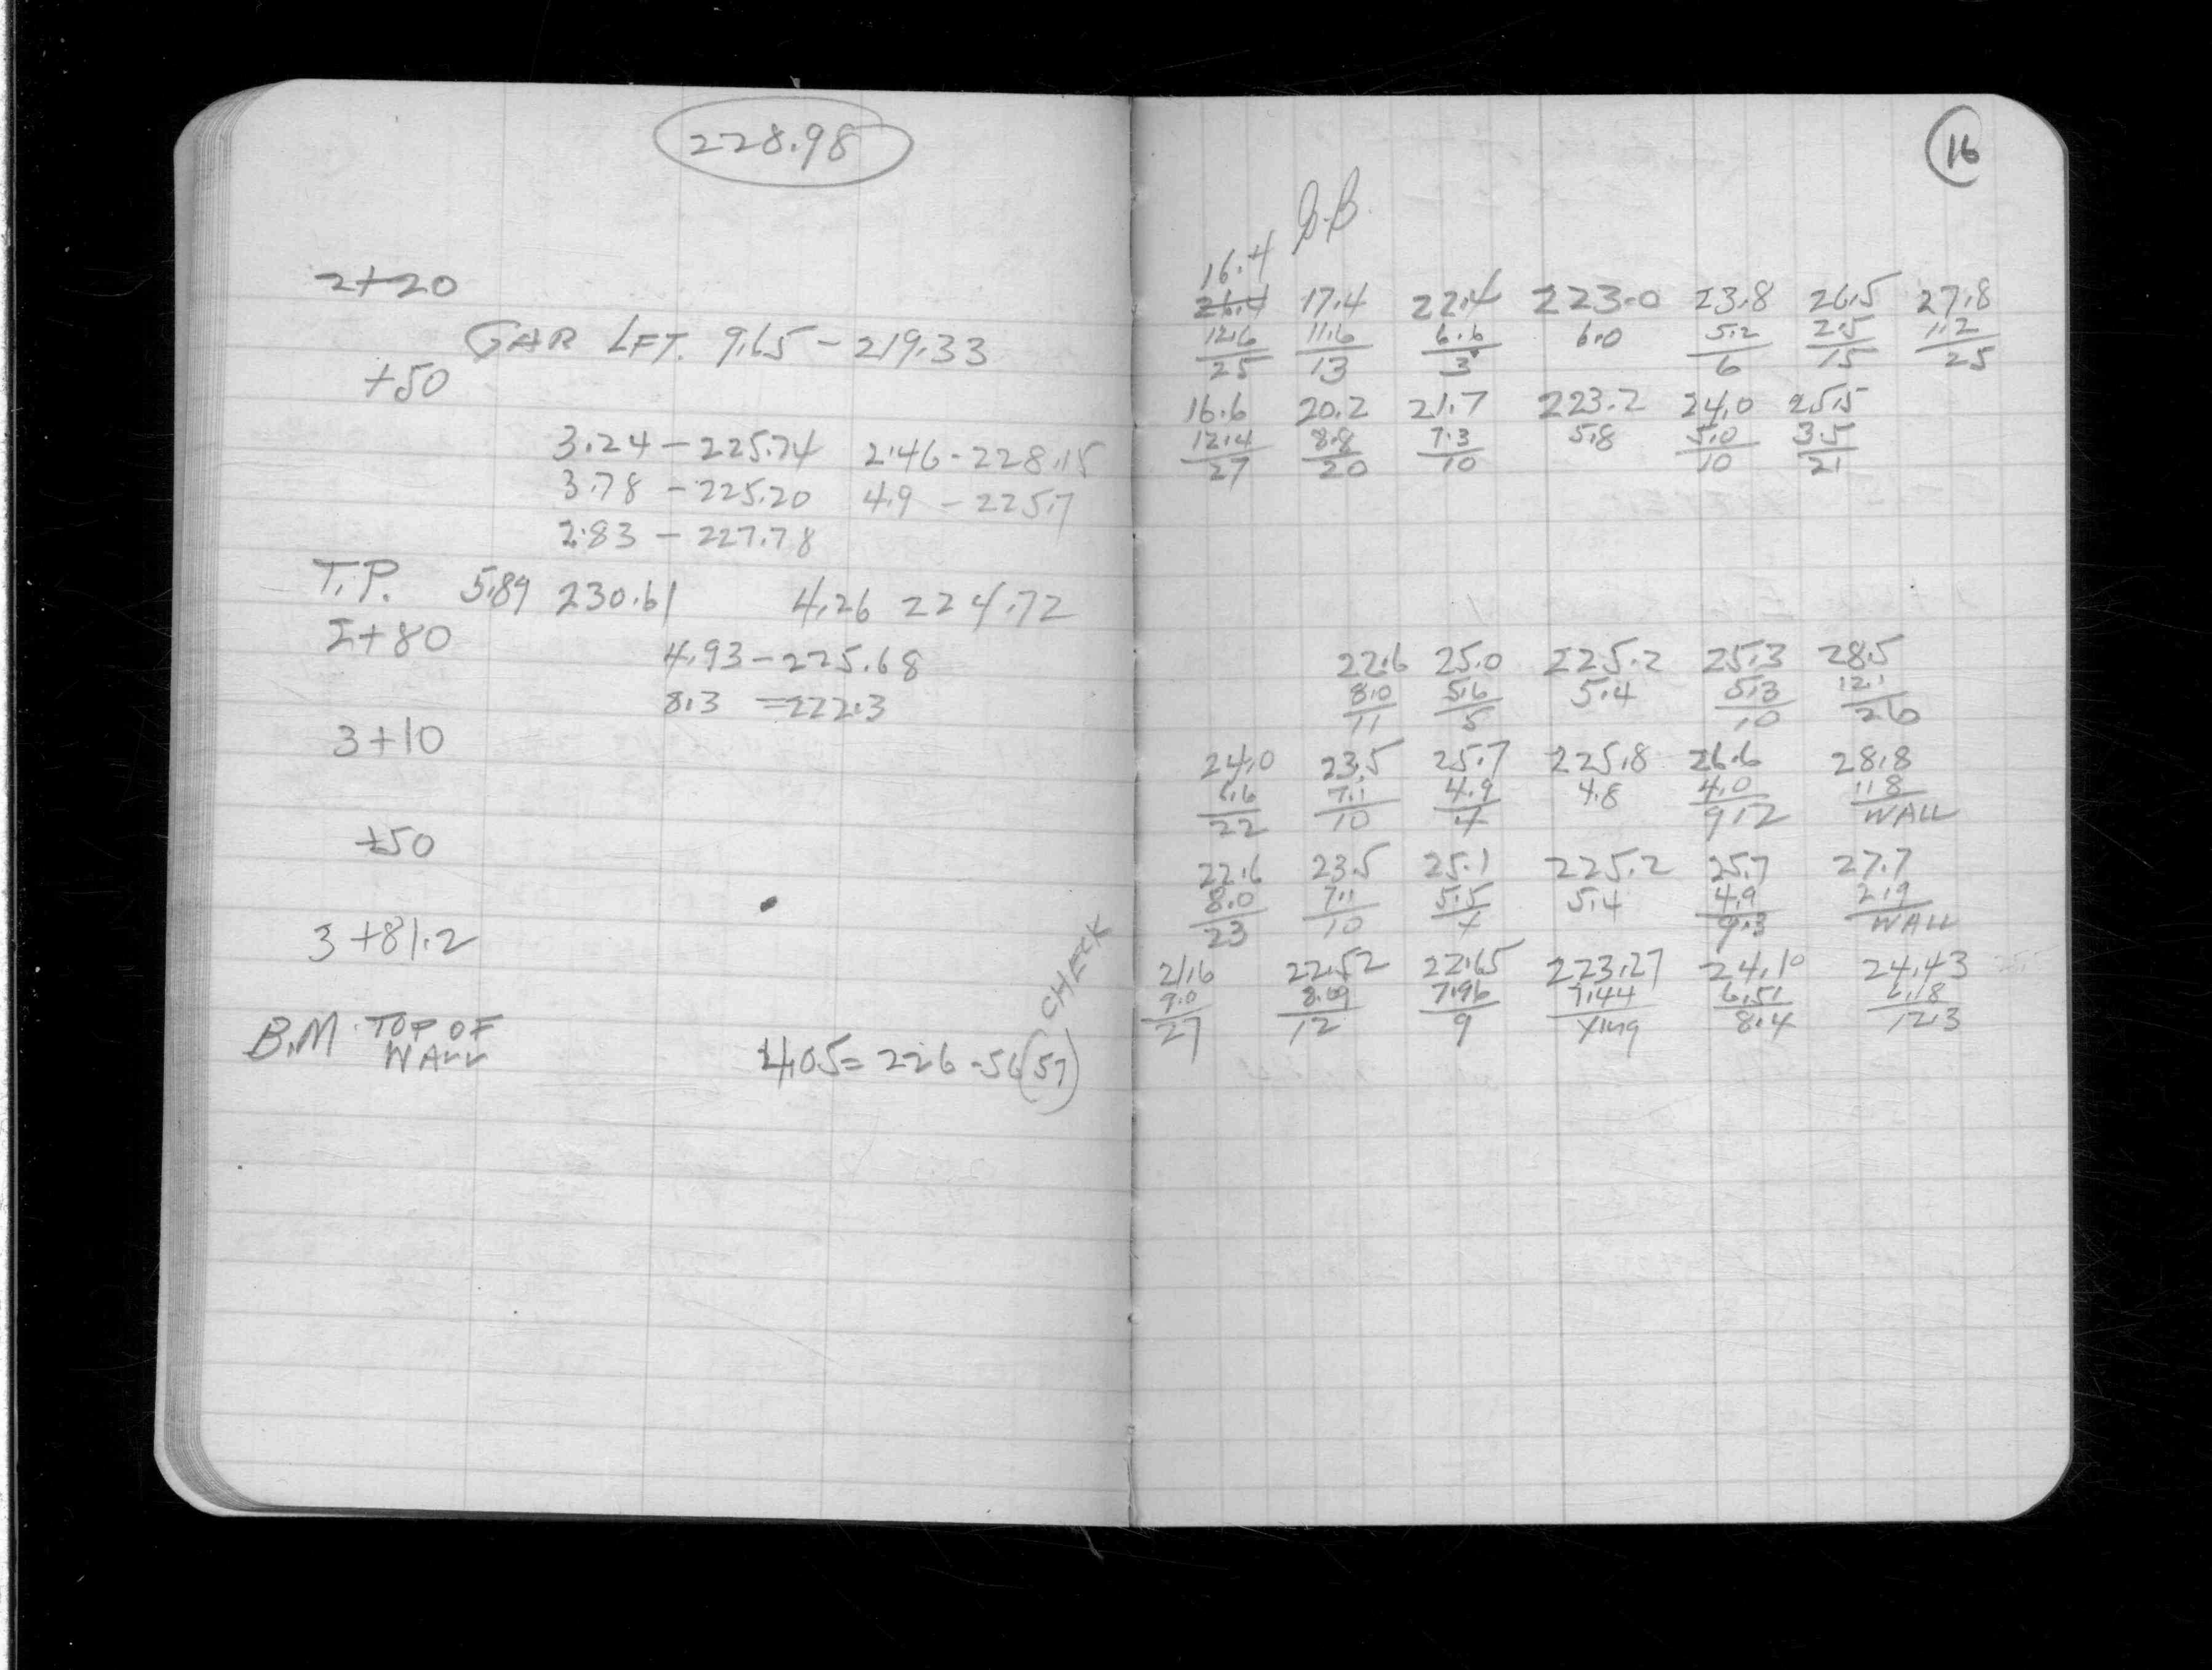 228.98
2+20
GAR LFT. 9.65 - 219.33
+50
3.24 - 225.74 2.46 - 228.15
3.78 - 225.20 4.9 - 225.7
2.83 - 227.78
T.P. 5.89 230.61 4.26 224.72
2+80
4.93 - 225.68
8.3 = 222.3
3+10
+50
3+81.2
CHECK
B.M. TOP OF
WALL
4.05 = 226.56 (57)
16
16.4
26.4 17.4 22.4 223.0 23.8 26.5 27.8
12.6 11.6 6.6 6.0 5.2 2.5 1.2
25 13 3 6 15 25
16.6 20.2 21.7 223.2 24.0 25.5
12.4 8.8 7.3 5.8 5.0 3.5
27 20 10 10 21
22.6 25.0 225.2 25.3 28.5
8.0 5.6 5.4 5.3 12.1
11 5 10 26
24.0 23.5 25.7 225.8 26.6 28.8
6.6 7.1 4.9 4.8 4.0 1.8
22 10 4 9.2 WALL
22.6 23.5 25.1 225.2 25.7 27.7
8.0 7.1 5.5 5.4 4.9 2.9
23 10 4 9.3 WALL
21.6 22.52 22.65 223.27 24.10 24.43
9.0 8.09 7.96 7.44 6.51 6.18
27 12 9 8.4 12.3